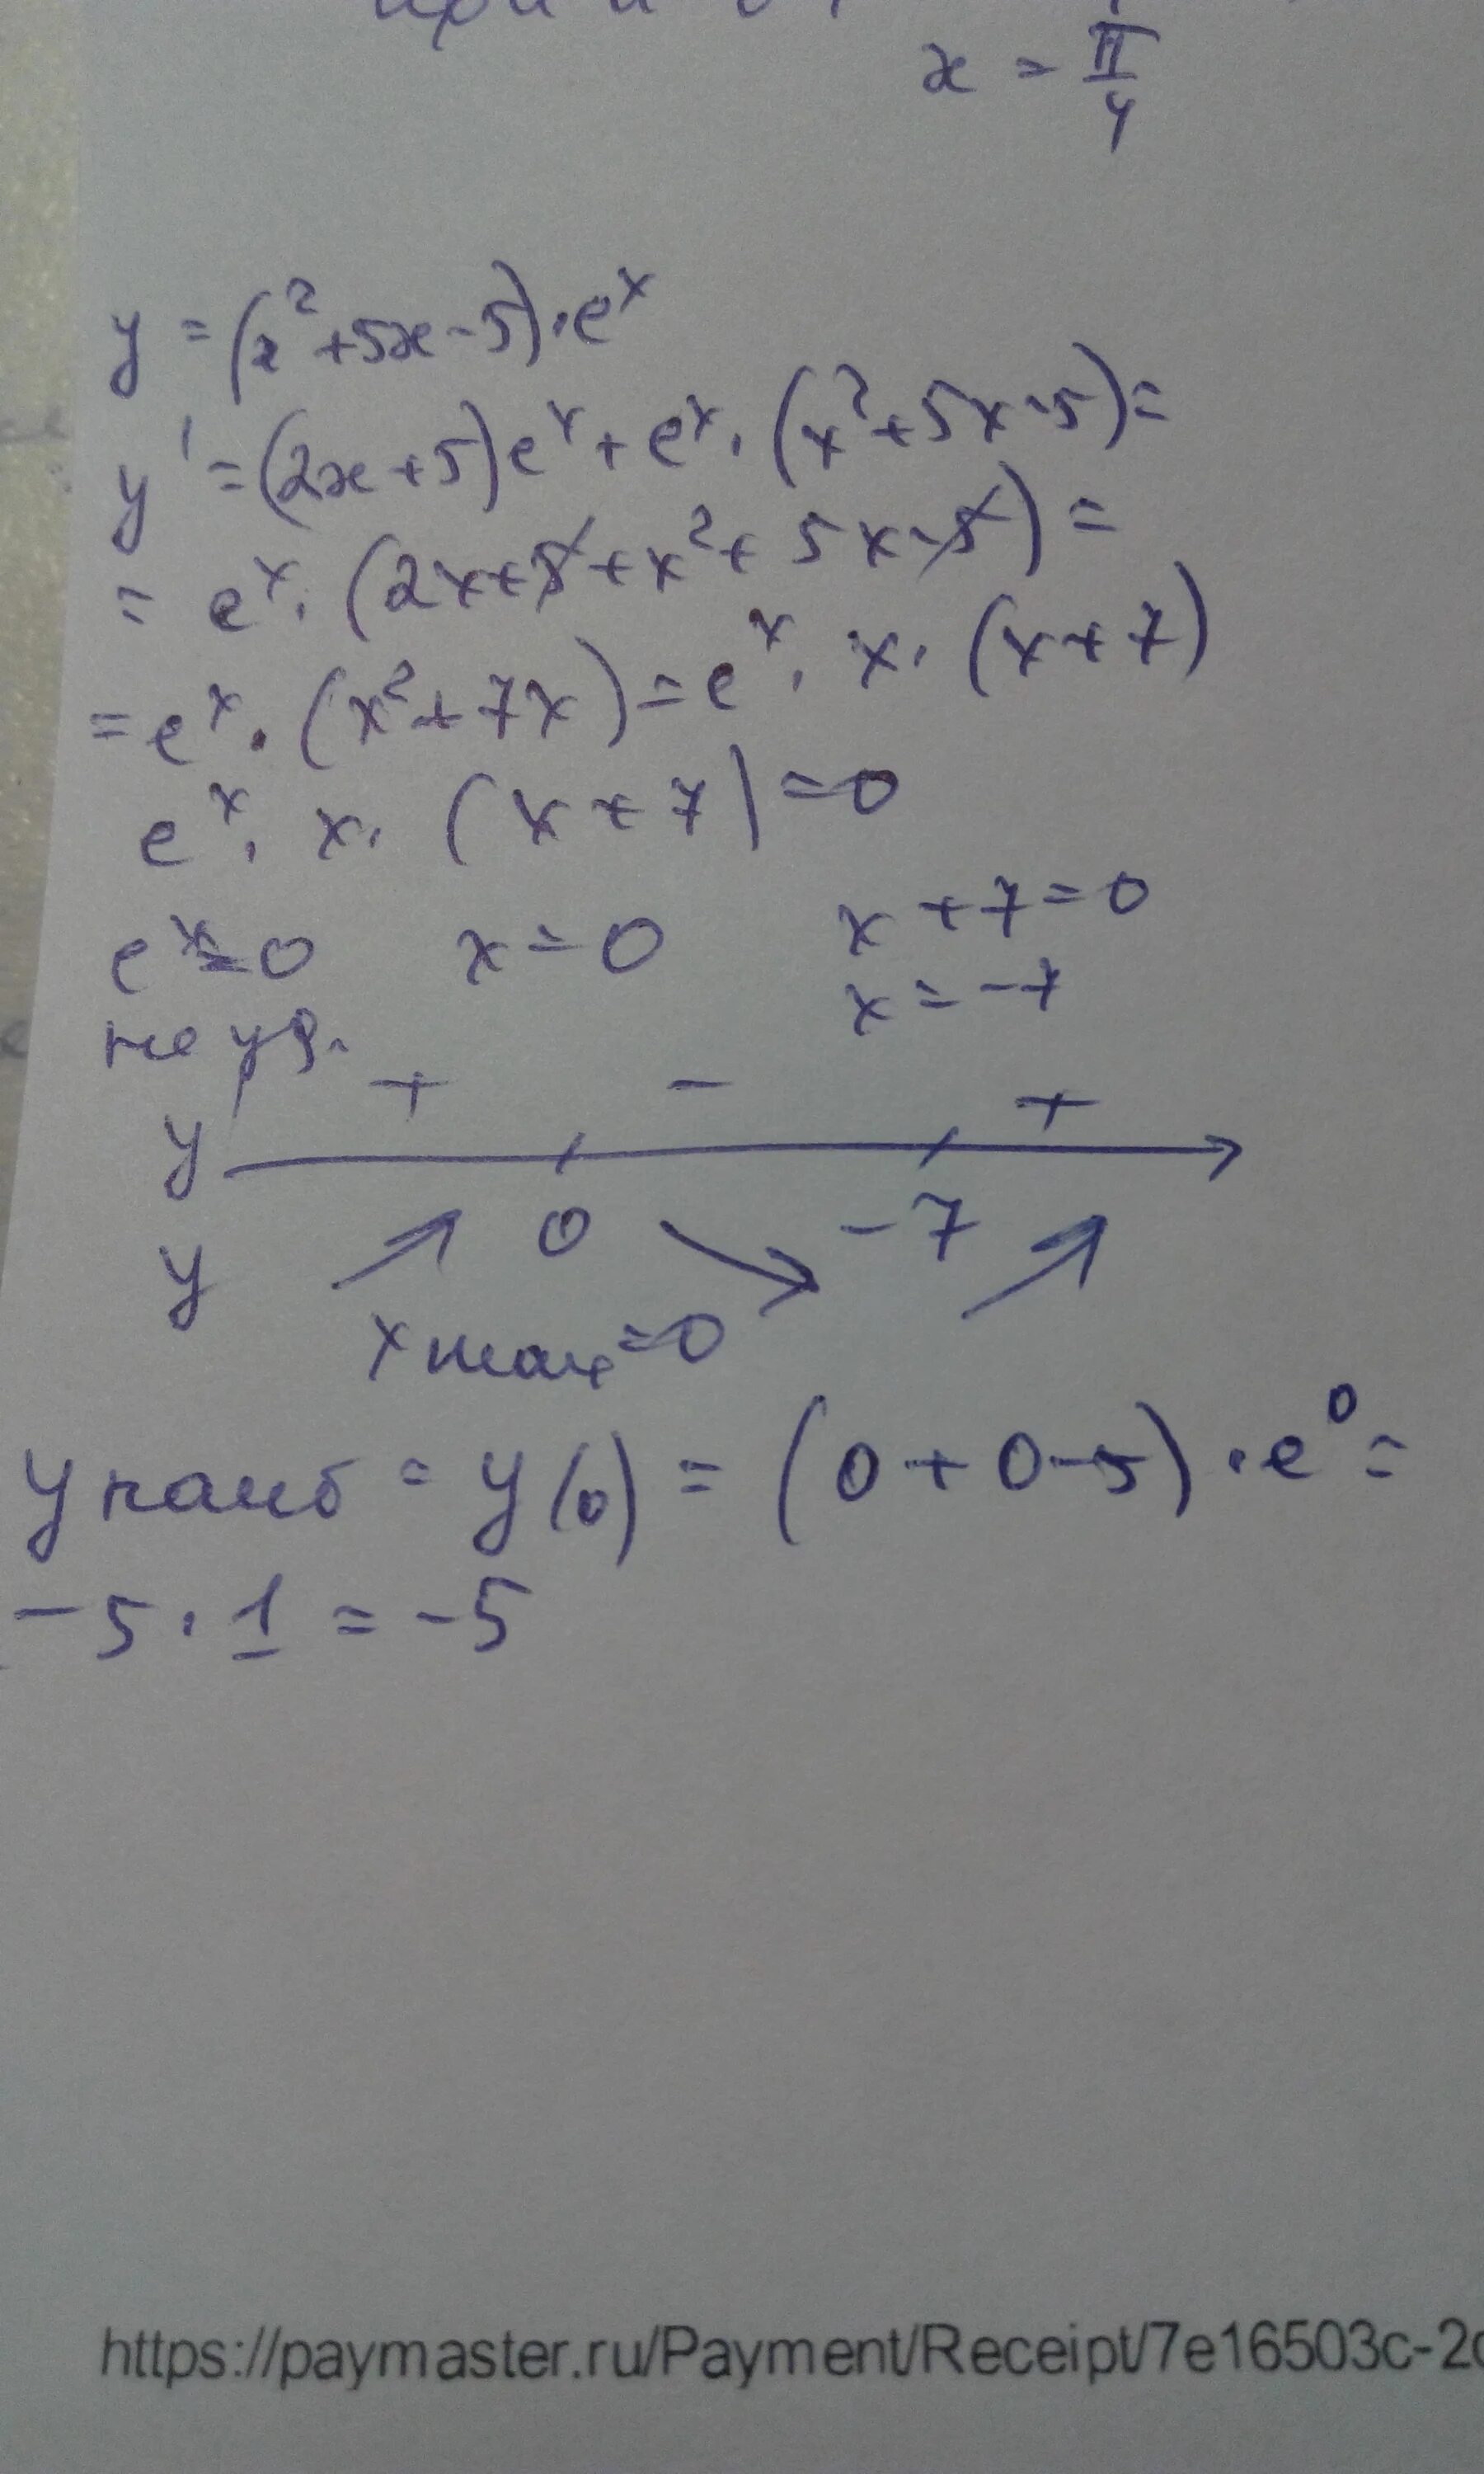 x = π/4
y = (x²+5x-5)·eˣ
y' = (2x+5)eˣ + eˣ·(x²+5x-5)=
= eˣ·(2x+5+x²+5x-5) =
= eˣ·(x²+7x) = eˣ·x·(x+7)
eˣ·x·(x+7)=0
eˣ=0 x=0 x+7=0
не ур. x=-7
+ - +
y
0 -7
y
x max=0
y наиб = y(0) = (0+0-5)·e⁰=
-5·1 = -5
https://paymaster.ru/Payment/Receipt/7e16503c-2